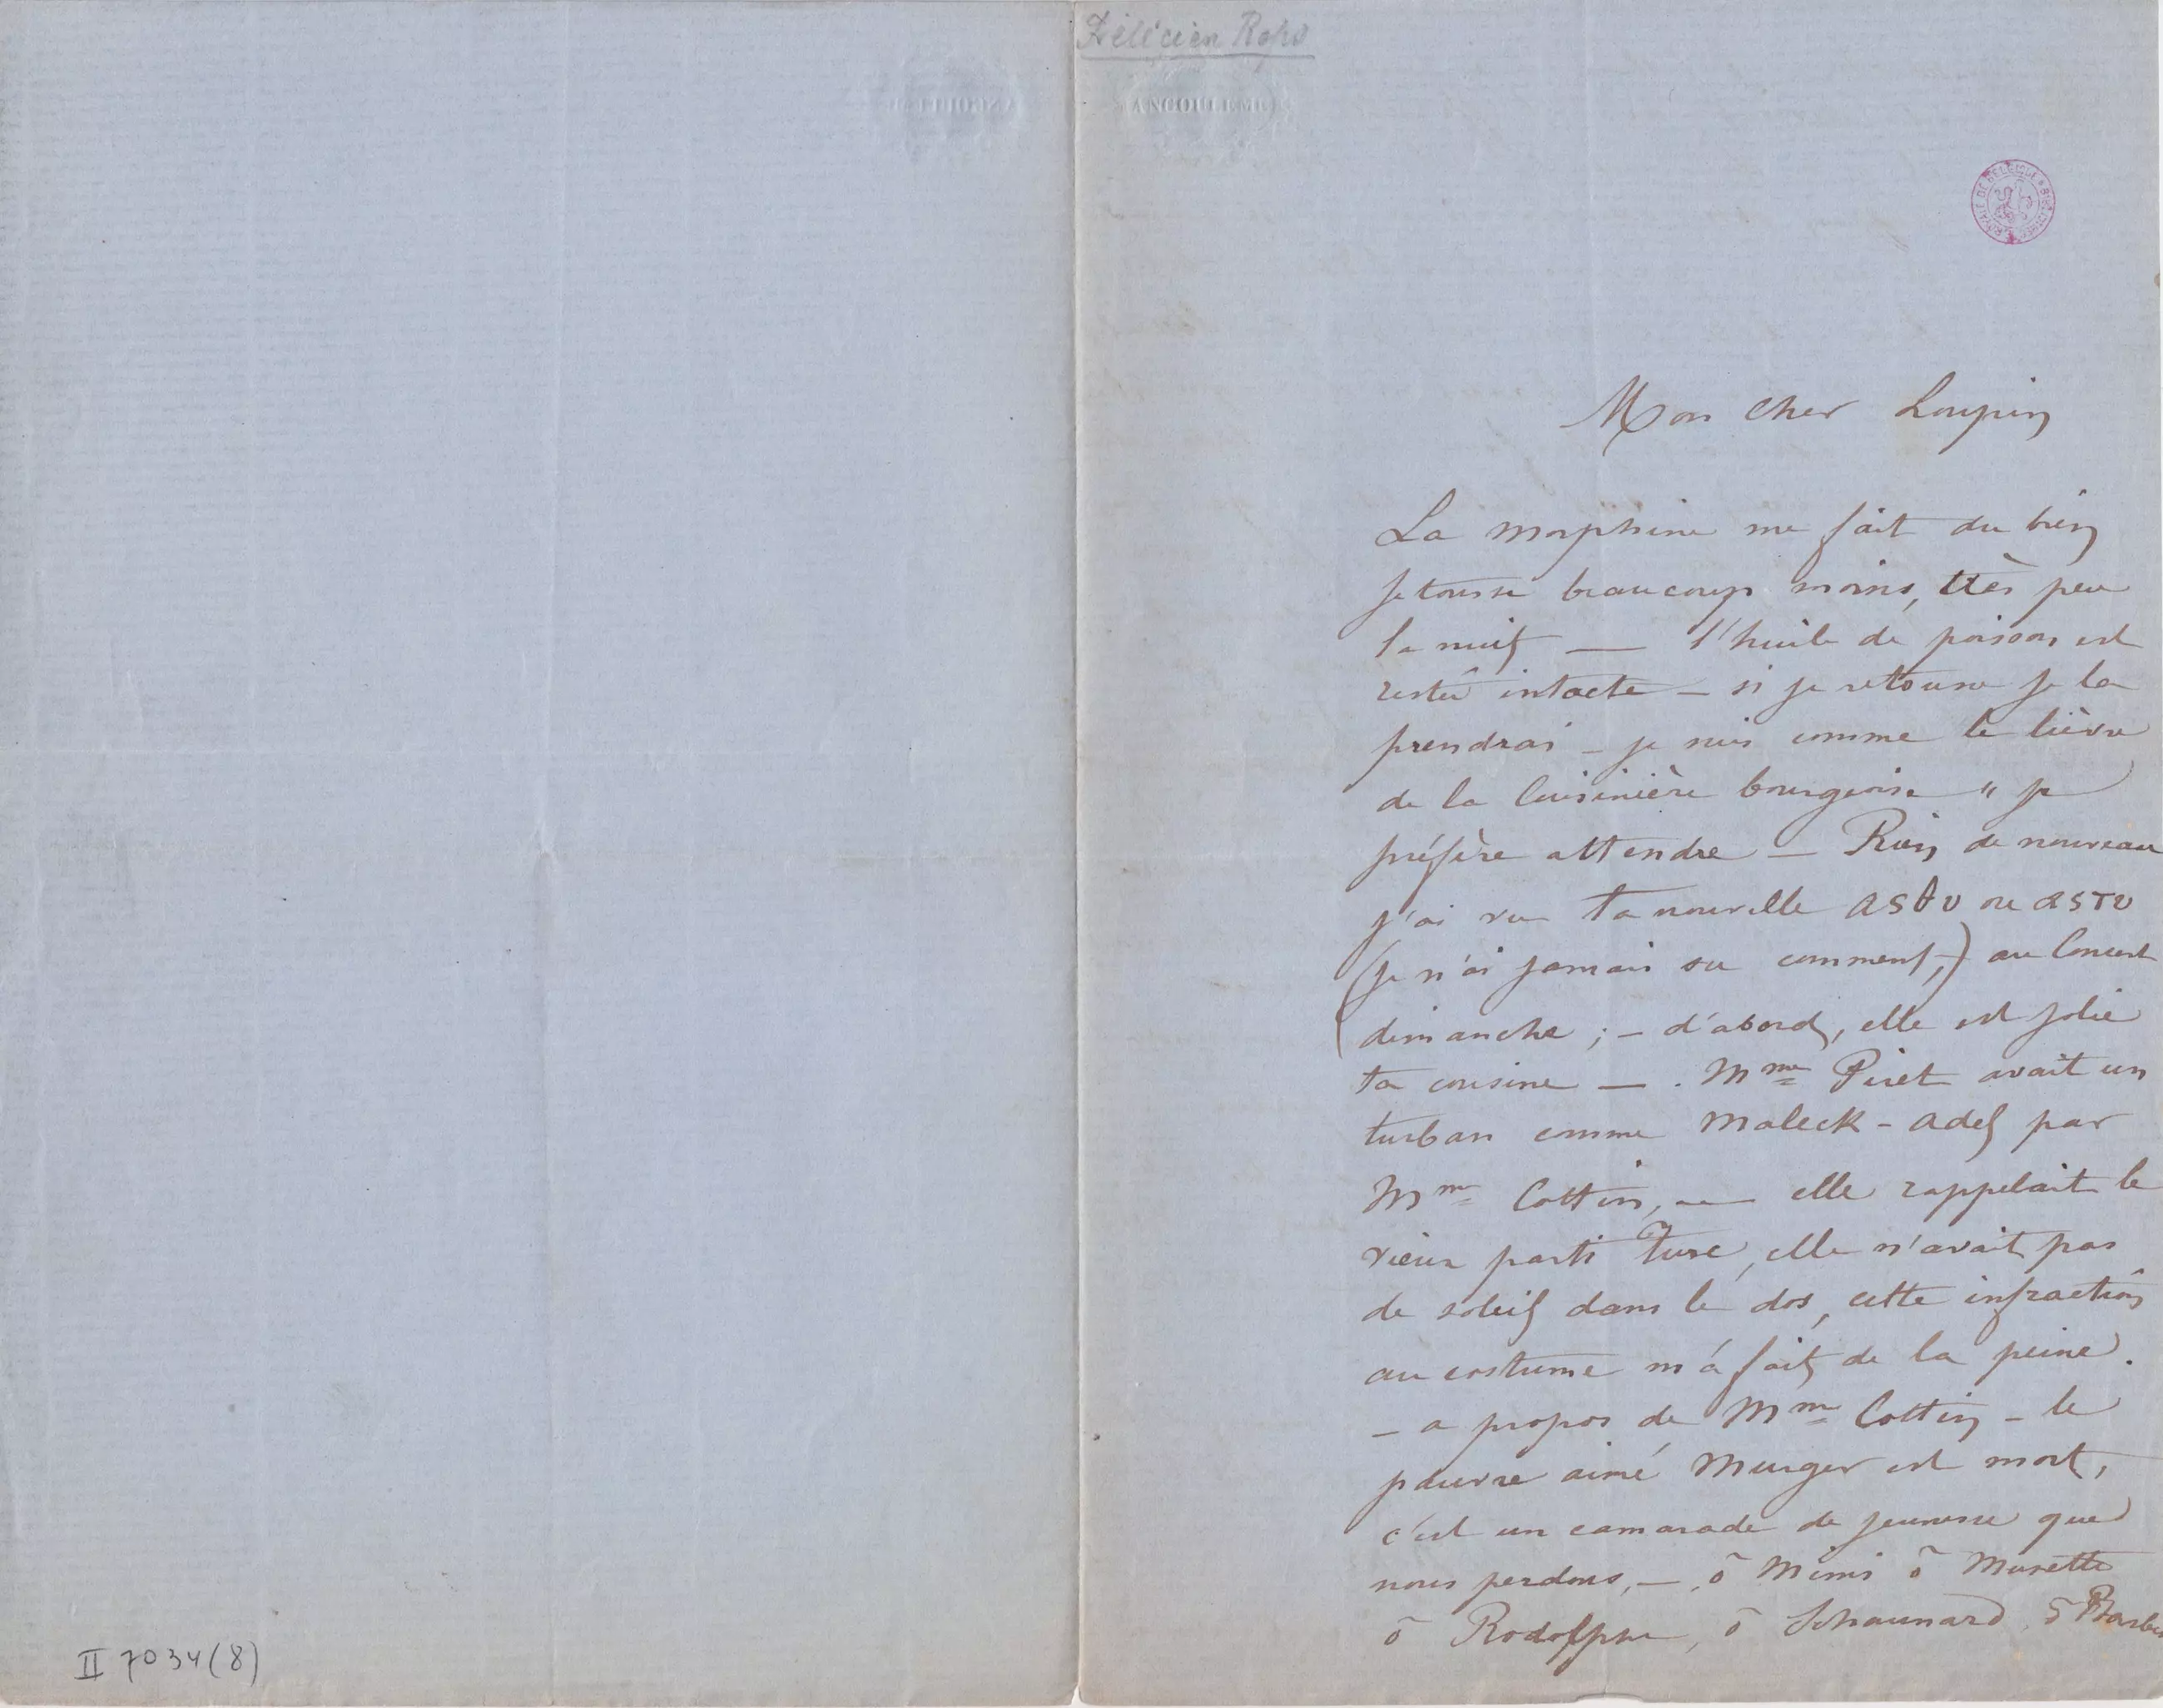 Félicien Rops
ANGOULEME
BIBLIOTHEQUE ROYALE DE BELGIQUE
Mon cher Loupin
La morphine me fait du bien
je tousse beaucoup moins, très peu
la nuit — l'huile de poisson est
restée intacte — si je retousse je la
prendrai — je suis comme le lièvre
de la Cuisinière bourgeoise " je
préfère attendre — Rien de nouveau
j'ai vu ta nouvelle
(je n'ai jamais su comment,) au Concert
dimanche ; — d'abord, elle est jolie
ta cousine — . Mme Piret avait un
turban comme Maleck-Adel par
Mme Cottin, — elle rappelait le
vieux parti Turc, elle n'avait pas
de soleil dans le dos, cette infraction
au costume m'a fait de la peine.
— a propos de Mme Cottin — le
pauvre aimé Murger est mort,
c'est un camarade de jeunesse que
nous perdons, — ō Mimi ō Musette
ō Rodolphe, ō Schaunard, ō
II 7034(8)